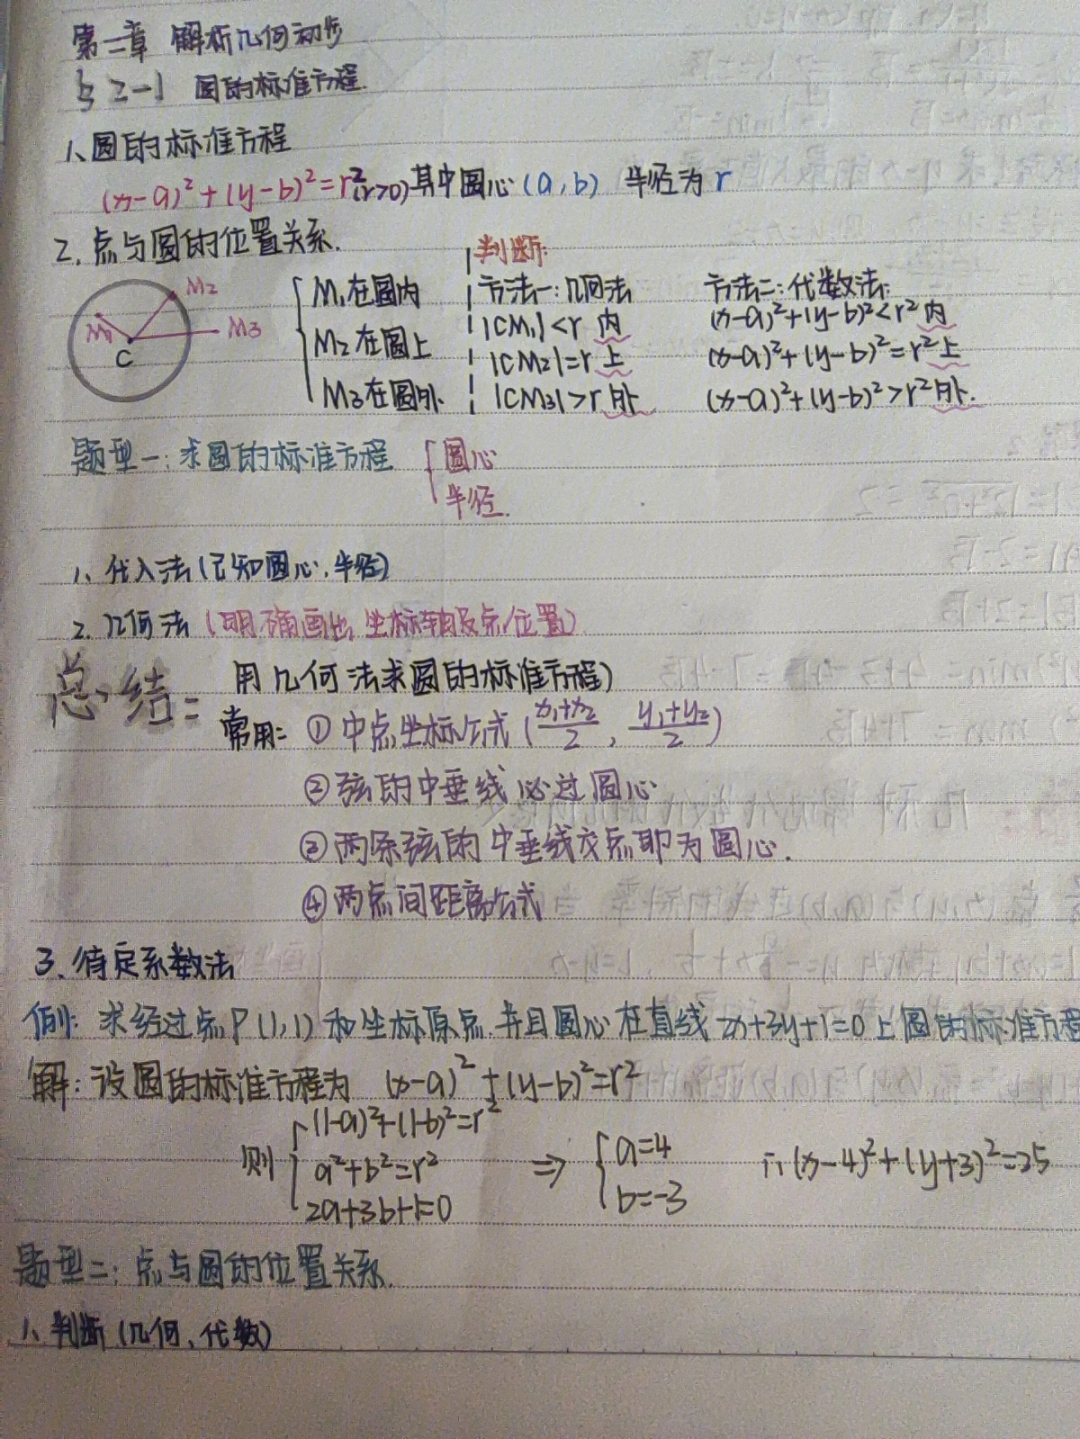 第二章 解析几何初步
§2-1 圆的标准方程.
1、圆的标准方程
(x-a)²+(y-b)²=r²(r>0)其中圆心(a,b) 半径为r
2、点与圆的位置关系.
判断:
M₁ M₂ M₃ C
M₁在圆内 方法一:几何法 方法二:代数法:
|CM₁|<r 内 (x-a)²+(y-b)²<r²内
M₂在圆上 |CM₂|=r 上 (x-a)²+(y-b)²=r²上
M₃在圆外 |CM₃|>r 外 (x-a)²+(y-b)²>r²外.
题型一:求圆的标准方程 { 圆心
半径.
1、代入法(已知圆心,半径)
2. 几何法(明确画出坐标轴及点位置)
总结: 用几何法求圆的标准方程)
常用: ①中点坐标公式(x₁+x₂/2, y₁+y₂/2)
②弦的中垂线必过圆心
③两条弦的中垂线交点即为圆心.
④两点间距离公式
3、待定系数法
例: 求经过点P(1,1)和坐标原点,并且圆心在直线2x+3y+1=0上圆的标准方程
解:设圆的标准方程为 (x-a)²+(y-b)²=r²
则 { (1-a)²+(1-b)²=r²
a²+b²=r² ⇒ { a=4 ∴(x-4)²+(y+3)²=25
2a+3b+1=0 b=-3
题型二:点与圆的位置关系.
1、判断(几何、代数)